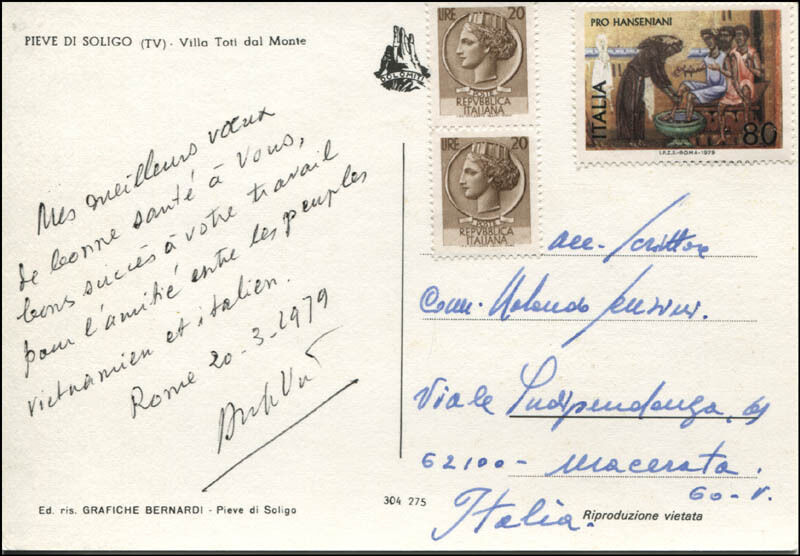 PIEVE DI SOLIGO (TV) - Villa Toti dal Monte
DOLOMITI
LIRE 20
POSTE
REPVBBLICA
ITALIANA
LIRE 20
POSTE
REPVBBLICA
ITALIANA
PRO HANSENIANI
ITALIA
80
I.P.Z.S.-ROMA-1979
Mes meilleurs vœux
de bonne santé à Vous,
bons succès à votre travail
pour l'amitié entre les peuples
vietnamien et italien.
Rome 20-3-1979
Scrittore
Com. Rolando
Viale Indipendenza,
62100 - Macerata.
Italia.
Ed. ris. GRAFICHE BERNARDI - Pieve di Soligo
304 275
Riproduzione vietata